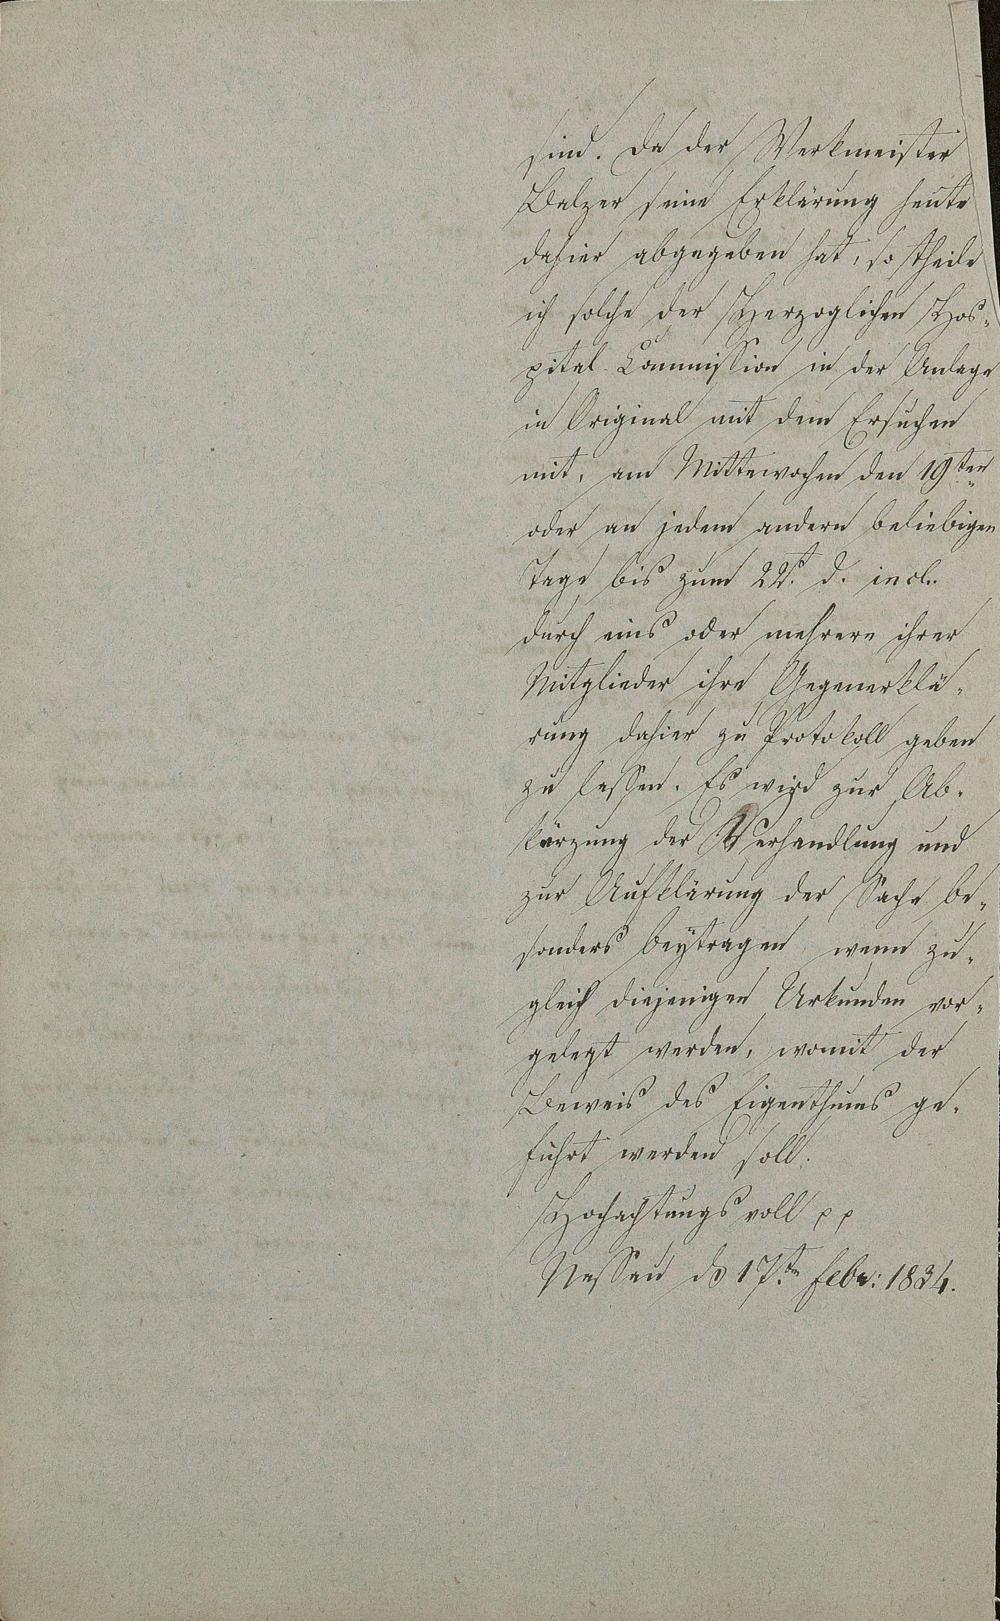 sind. Da der Werkmeister
Balzer seine Erklärung heute
dahier abgegeben hat, so theile
ich solche der Herzoglichen Hos-
pital Commission in der Anlage
in Original mit dem Ersuchen
mit, am Mittewochen den 19ten
oder an jedem andern beliebigen
Tage bis zum 22t. d. incl.
durch eins oder mehrere ihrer
Mitglieder ihre Gegenerklä-
rung dahier zu Protokoll geben
zu lassen. Es wird zur Ab-
kürzung der Verhandlung und
zur Aufklärung der Sache be-
sonders beytragen wenn zu-
gleich diejenigen Urkunden vor-
gelegt werden, womit der
Beweis des Eigenthums ge-
führt werden soll.
Hochachtungsvoll pp
Nassau d 17te Febr: 1834.